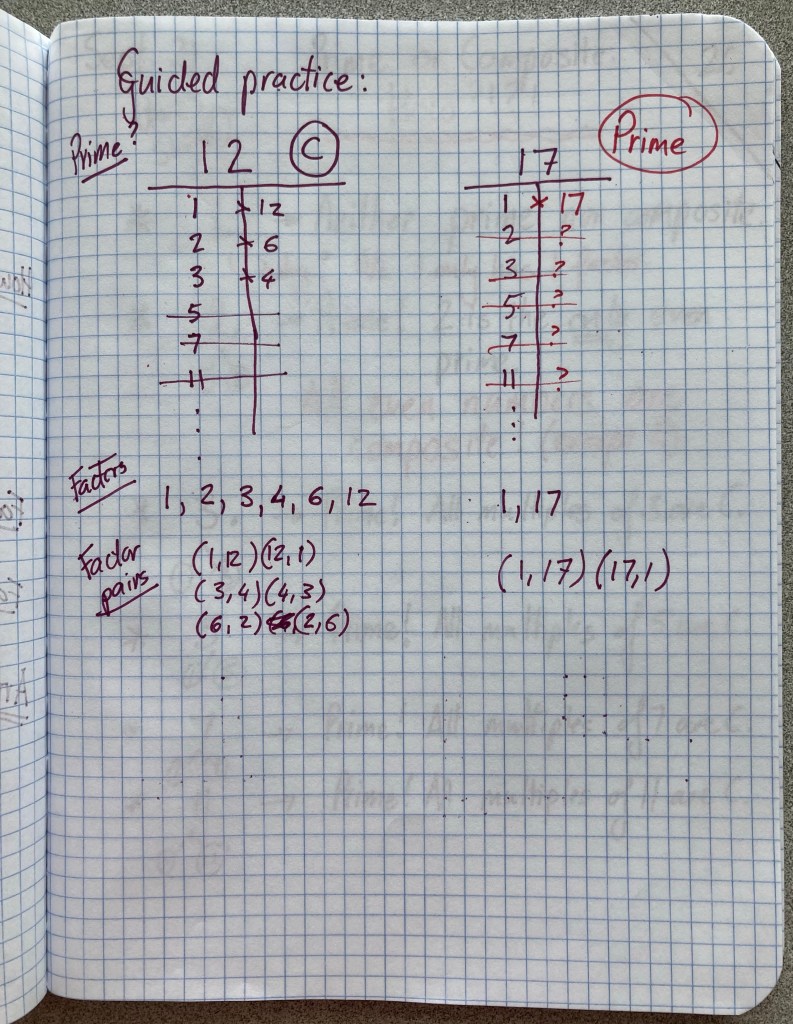 Guided practice:
Prime?
12 C
1 × 12
2 × 6
3 × 4
5
7
11
17 Prime
1 × 17
2 ?
3 ?
5 ?
7 ?
11 ?
Factors
1, 2, 3, 4, 6, 12
1, 17
Factor
pairs
(1,12)(12,1)
(3,4)(4,3)
(6,2)(2,6)
(1,17)(17,1)